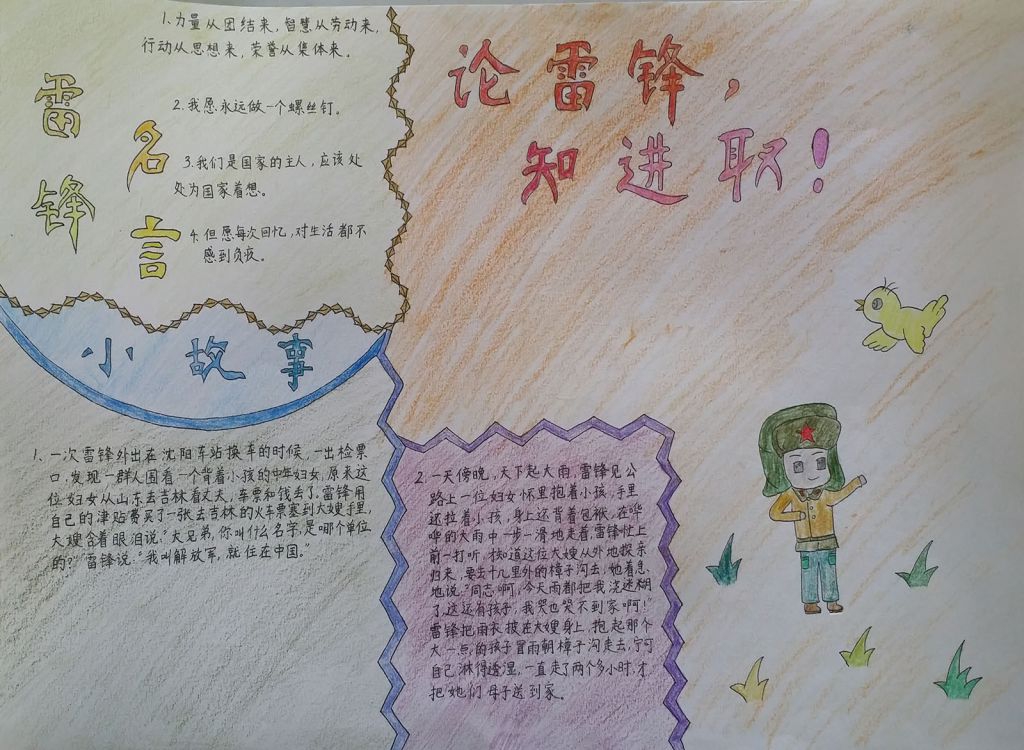 论雷锋，
知进取！
雷锋
名言
1、力量从团结来，智慧从劳动来，
行动从思想来，荣誉从集体来。
2.我愿永远做一个螺丝钉。
3.我们是国家的主人，应该处
处为国家着想。
4.但愿每次回忆，对生活都不
感到负疚。
小故事
1、一次雷锋外出在沈阳车站换车的时候，一出检票
口，发现一群人围看一个背着小孩的中年妇女，原来这
位妇女从山东去吉林看丈夫，车票和钱丢了，雷锋用
自己的津贴费买了一张去吉林的火车票塞到大嫂手里，
大嫂含着眼泪说："大兄弟，你叫什么名字，是哪个单位
的？"雷锋说："我叫解放军，就住在中国。"
2.一天傍晚，天下起大雨，雷锋见公
路上一位妇女怀里抱着小孩，手里
还拉着小孩，身上还背着包袱，在哗
哗的大雨中一步一滑地走着，雷锋忙上
前一打听，才知道这位大嫂从外地探亲
归来，要去十几里外的樟子沟去，她着急
地说："同志啊，今天雨都把我浇迷糊
了，这还有孩子，我哭也哭不到家啊！"
雷锋把雨衣披在大嫂身上，抱起那个
大一点的孩子冒雨朝樟子沟走去，宁可
自己淋得透湿，一直走了两个多小时，才
把她们母子送到家。